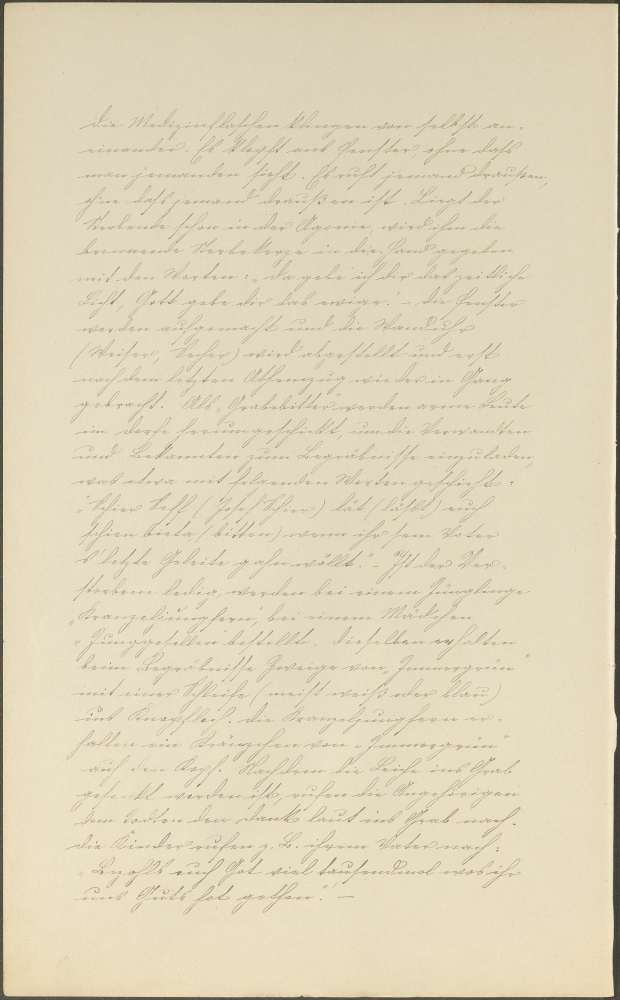 die Medizinflaschen klingen von selbst an-
einander. Es klopft ans Fenster, ohne daß
man jemanden sieht. Es ruft jemand draußen,
ohne daß jemand draußen ist. Liegt der
Sterbende schon in der Agonie, wird ihm die
brennende Sterbekerze in die Hand gegeben
mit den Worten: „Da gebe ich dir das zeitliche
Licht, Gott gebe dir das ewige." – Die Fenster
werden aufgemacht und die Wanduhr
(Weiser, Secher) wird abgestellt und erst
nach dem letzten Athemzug wieder in Gang
gebracht. Als „Grabebitter" werden arme Leute
im Dorfe herumgeschickt, um die Verwandten
und Bekannten zum Begräbnisse einzuladen,
was etwa mit folgenden Worten geschieht:
„Schier Seff (Josef Schier) lät (läßt) euch
schien bieta (bitten) wenn ihr sem Voter
s' letzte Geleite gahn wöllt." – Ist der Ver-
storbene ledig, werden bei einem Jünglinge
„Kranzeljungfern", bei einem Mädchen
„Junggesellen" bestellt. Dieselben erhalten
beim Begräbnisse Zweige von „Immergrün"
mit einer Schleife (meist weiß oder blau)
ins Knopfloch. Die Kranzeljungfern er-
halten ein Kränzchen von „Immergrün"
auf den Kopf. Nachdem die Leiche ins Grab
gesenkt worden ist, rufen die Angehörigen
dem Todten den Dank laut ins Grab nach.
Die Kinder rufen z. B. ihrem Vater nach:
„Bezohls euch Got viel tausendmol wos ihr
uns Guts hot gethon." –